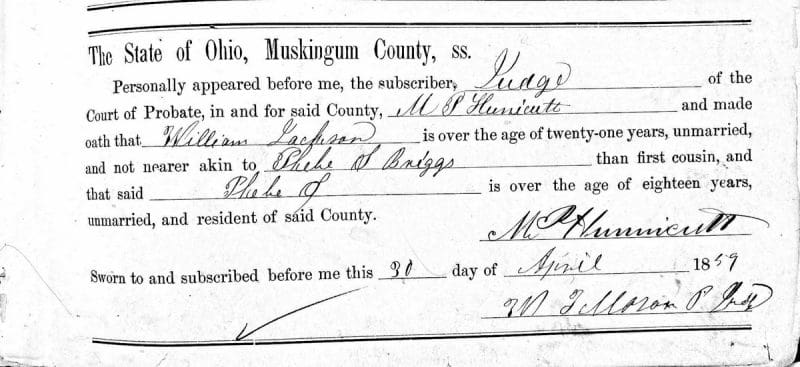 The State of Ohio, Muskingum County, ss.
Personally appeared before me, the subscriber, Judge of the
Court of Probate, in and for said County, M P Hunicutt and made
oath that William Jackson is over the age of twenty-one years, unmarried,
and not nearer akin to Phebe J Briggs than first cousin, and
that said Phebe J is over the age of eighteen years,
unmarried, and resident of said County.
M P Hunnicutt
Sworn to and subscribed before me this 30 day of April 1859
Moran P